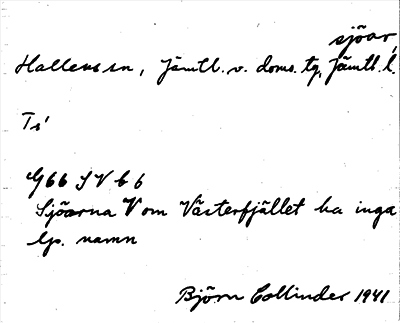 sjöar,
Hallen sn, Jämtl. v. doms. tg, Jämtl. l.
Ts'
G66 S V b 6
Sjöarna V om Västerfjället ha inga
lp. namn
Björn Collinder 1941